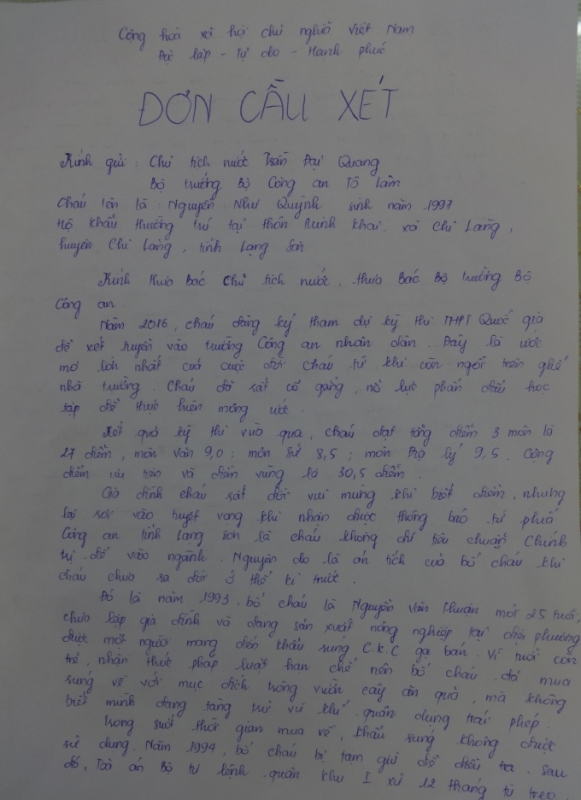 Cộng hoà xã hội chủ nghĩa Việt Nam
Độc lập - Tự do - Hạnh phúc
ĐƠN CẦU XÉT
Kính gửi: Chủ tịch nước Trần Đại Quang
Bộ trưởng Bộ Công an Tô Lâm
Cháu tên là: Nguyễn Như Quỳnh sinh năm 1997
Hộ khẩu thường trú tại thôn Minh Khai, xã Chi Lăng,
huyện Chi Lăng, tỉnh Lạng Sơn
Kính thưa Bác Chủ tịch nước, thưa Bác Bộ trưởng Bộ
Công an.
Năm 2016, cháu đăng ký tham dự kỳ thi THPT Quốc gia
để xét tuyển vào trường Công an nhân dân. Đây là ước
mơ lớn nhất của cuộc đời cháu từ khi còn ngồi trên ghế
nhà trường. Cháu đã rất cố gắng, nỗ lực phấn đấu học
tập để thực hiện mong ước.
Kết quả kỳ thi vừa qua, cháu đạt tổng điểm 3 môn là
27 điểm, môn văn 9,0; môn sử 8,5; môn Địa lý 9,5. Cộng
điểm ưu tiên và điểm vùng là 30,5 điểm.
Gia đình cháu rất đỗi vui mừng khi biết điểm, nhưng
lại rơi vào tuyệt vọng khi nhận được thông báo từ phía
Công an tỉnh Lạng Sơn là cháu không đủ tiêu chuẩn Chính
trị để vào ngành. Nguyên do là án tích của bố cháu khi
cháu chưa ra đời ở thế kỉ trước.
Đó là năm 1993, bố cháu là Nguyễn Văn Thuận mới 25 tuổi,
chưa lập gia đình và đang sản xuất nông nghiệp tại địa phương
được một người mang đến khẩu súng C.K.C gạ bán. Vì tuổi còn
trẻ, nhận thức pháp luật hạn chế nên bố cháu đã mua
súng về với mục đích trông vườn cây ăn quả, mà không
biết mình đang tàng trữ vũ khí quân dụng trái phép.
Trong suốt thời gian mua về, khẩu súng không được
sử dụng. Năm 1994, bố cháu bị tạm giữ để điều tra. Sau
đó, Toà án Bộ tư lệnh quân khu I xử 12 tháng tù treo.